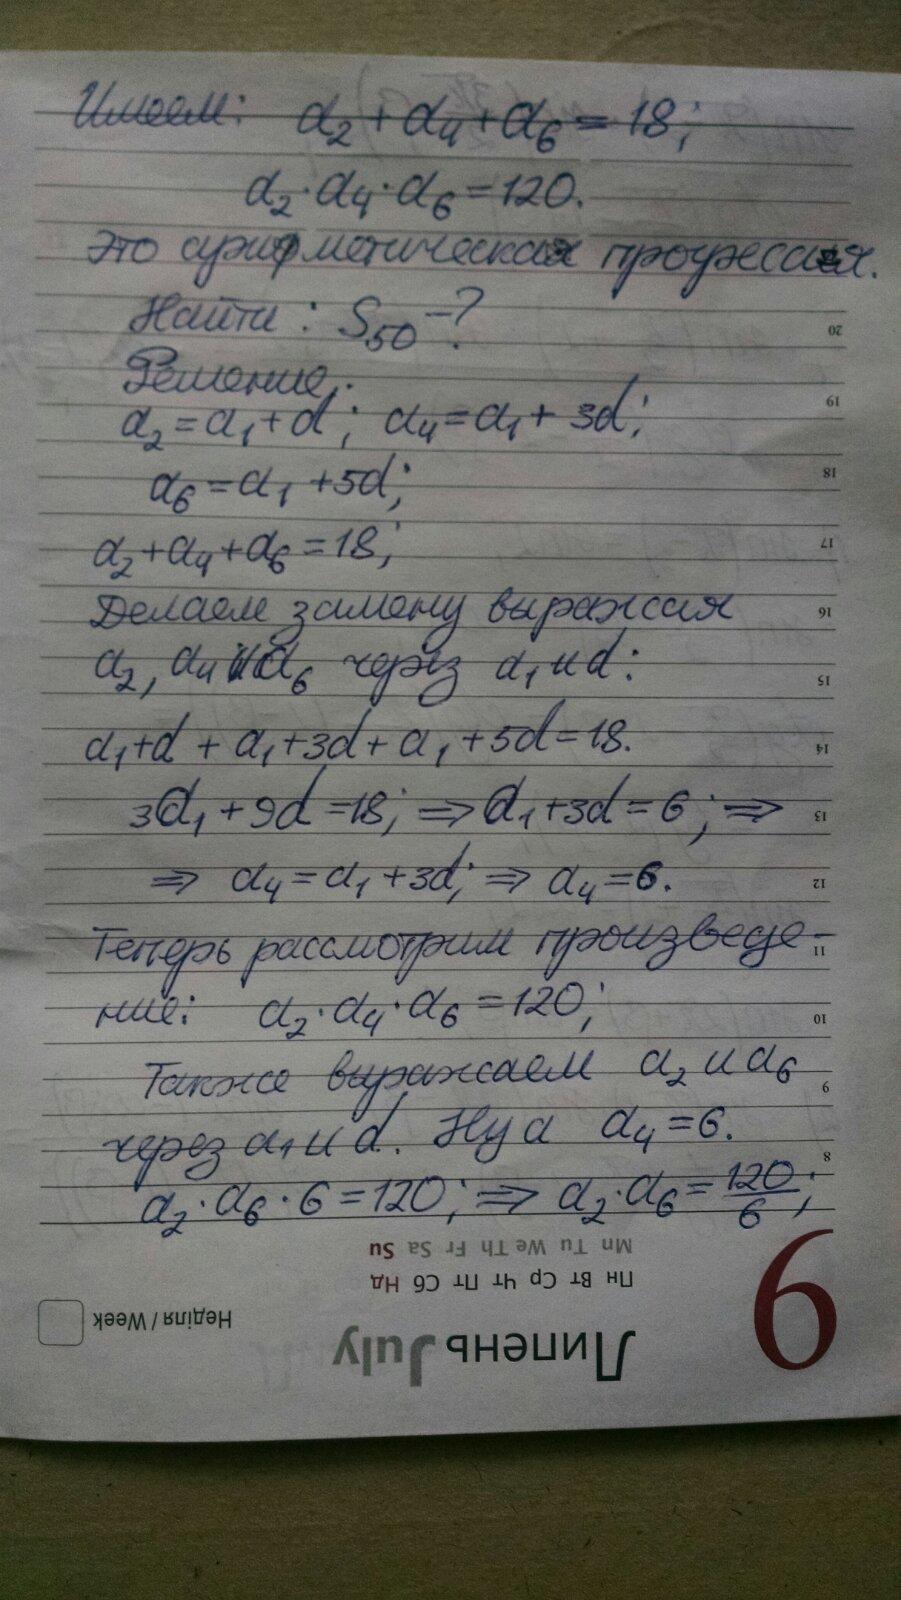 Имеем: a₂+a₄+a₆=18;
a₂·a₄·a₆=120.
Это арифметическая прогрессия.
Найти: S₅₀-?
Решение.
a₂=a₁+d; a₄=a₁+3d;
a₆=a₁+5d;
a₂+a₄+a₆=18;
Делаем замену выражая
a₂, a₄ и a₆ через a₁ и d:
a₁+d+a₁+3d+a₁+5d=18.
3a₁+9d=18; ⇒ a₁+3d=6; ⇒
⇒ a₄=a₁+3d; ⇒ a₄=6.
Теперь рассмотрим произведе-
ние: a₂·a₄·a₆=120;
Также выражаем a₂ и a₆
через a₁ и d. Ну а a₄=6.
a₂·a₆·6=120; ⇒ a₂·a₆=120/6;
20
19
18
17
16
15
14
13
12
11
10
9
8
9
Липень July
Неділя / Week
Пн Вт Ср Чт Пт Сб Нд
Mn Tu We Th Fr Sa Su